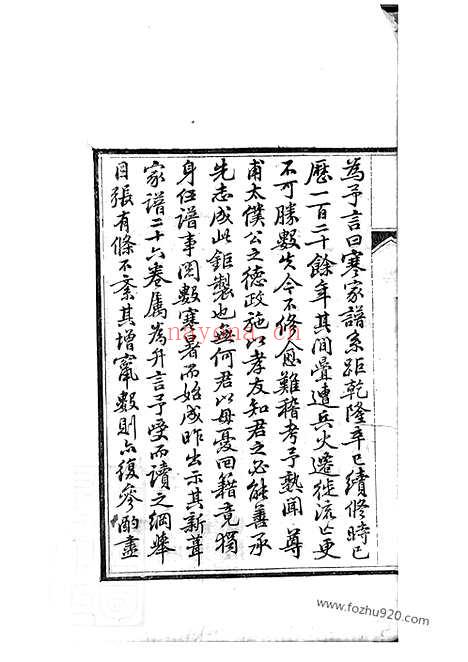 為予言曰寒家譜系距乾隆辛巳續修時已
歷一百二十餘年其間疊遭兵火遷徙流亡更
不可勝數失今不修愈難稽考予熟聞 尊
甫太僕公之德政施以孝友知君之必能善承
先志成此鉅製也無何君以母憂回籍竟獨
身任譜事閱數寒暑而始成昨出示其新葺
家譜二十六卷屬為弁言予受而讀之綱舉
目張有條不紊其增竄數則亦復參酌盡
nayona.cn
www.fozhu920.com